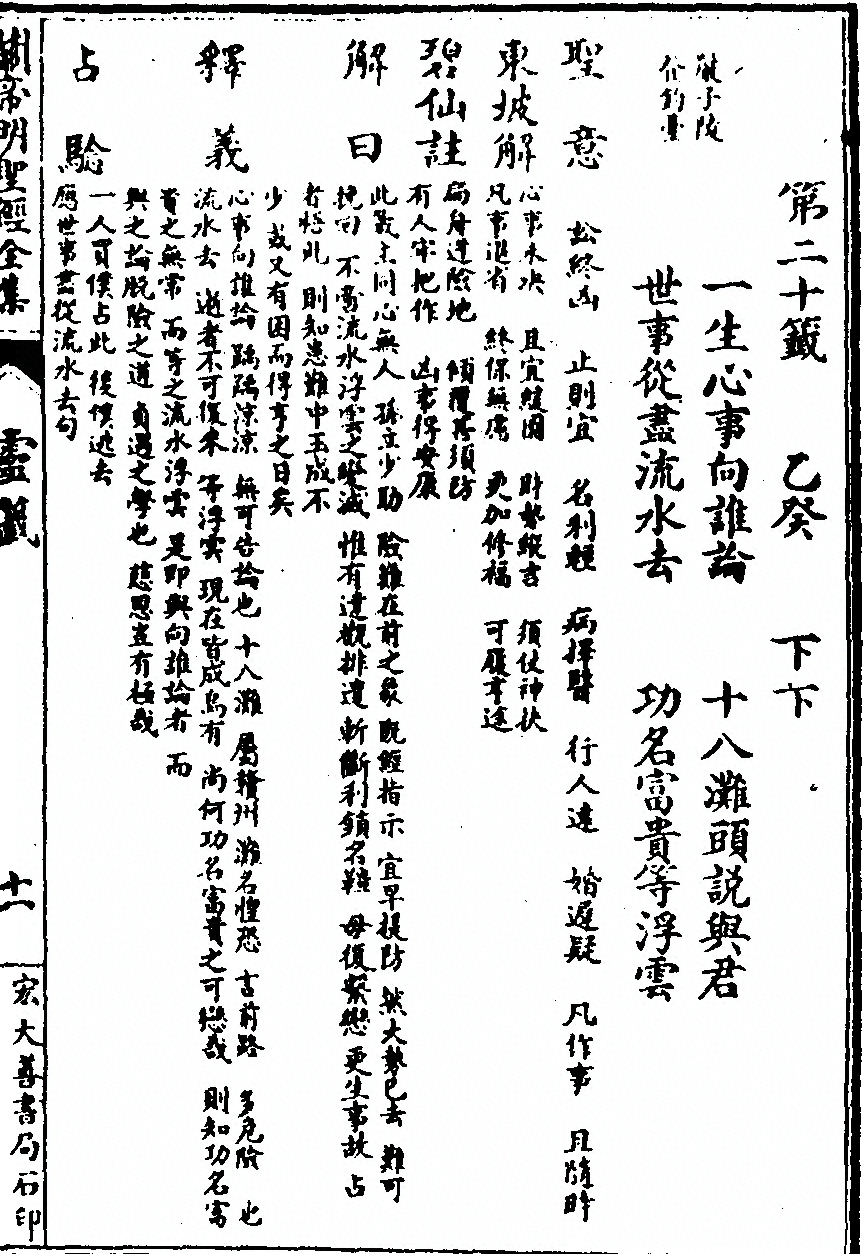 嚴子陵
登釣臺
第二十籤 乙癸 下下
一生心事向誰論 十八灘頭説與君
世事從盡流水去 功名富貴等浮雲
聖意 訟終凶 止則宜 名利輕 病擇醫 行人遠 婚遲疑 凡作事 且隨時
東坡解 心事未决 且宜緩圖 時勢縱吉 須仗神扶
凡事退省 終保無虞 更加修福 可履亨途
碧仙註 扁舟遊險地 傾覆再須防
有人牢把作 凶事得安康
解曰 此籤主同心無人 孫立少助 險難在前之象 既經指示 宜早提防 然大勢已去 難可
挽回 不啻流水浮雲之變滅 惟有達觀排遣 斬斷利鎖名韁 毋復縈戀 更生事故 占
者悟此 則知患難中玉成不
少 或又有困而得亨之日矣
釋義 心事向誰論 踽踽涼涼 無可告論也 十八灘 屬贛州 灘名惶恐 言前路 多危險 也
流水去 逝者不可復來 等浮雲 現在皆成烏有 尚何功名富貴之可戀哉 則知功名富
貴之無常 而等之流水浮雲 是即與向誰論者 而
與之論脱險之道 貞遇之學也 慈恩豈有極哉
占驗 一人買僕占此 後僕逃去
應世事盡從流水去句
關帝明聖經全集
靈籤
十一
宏大善書局石印